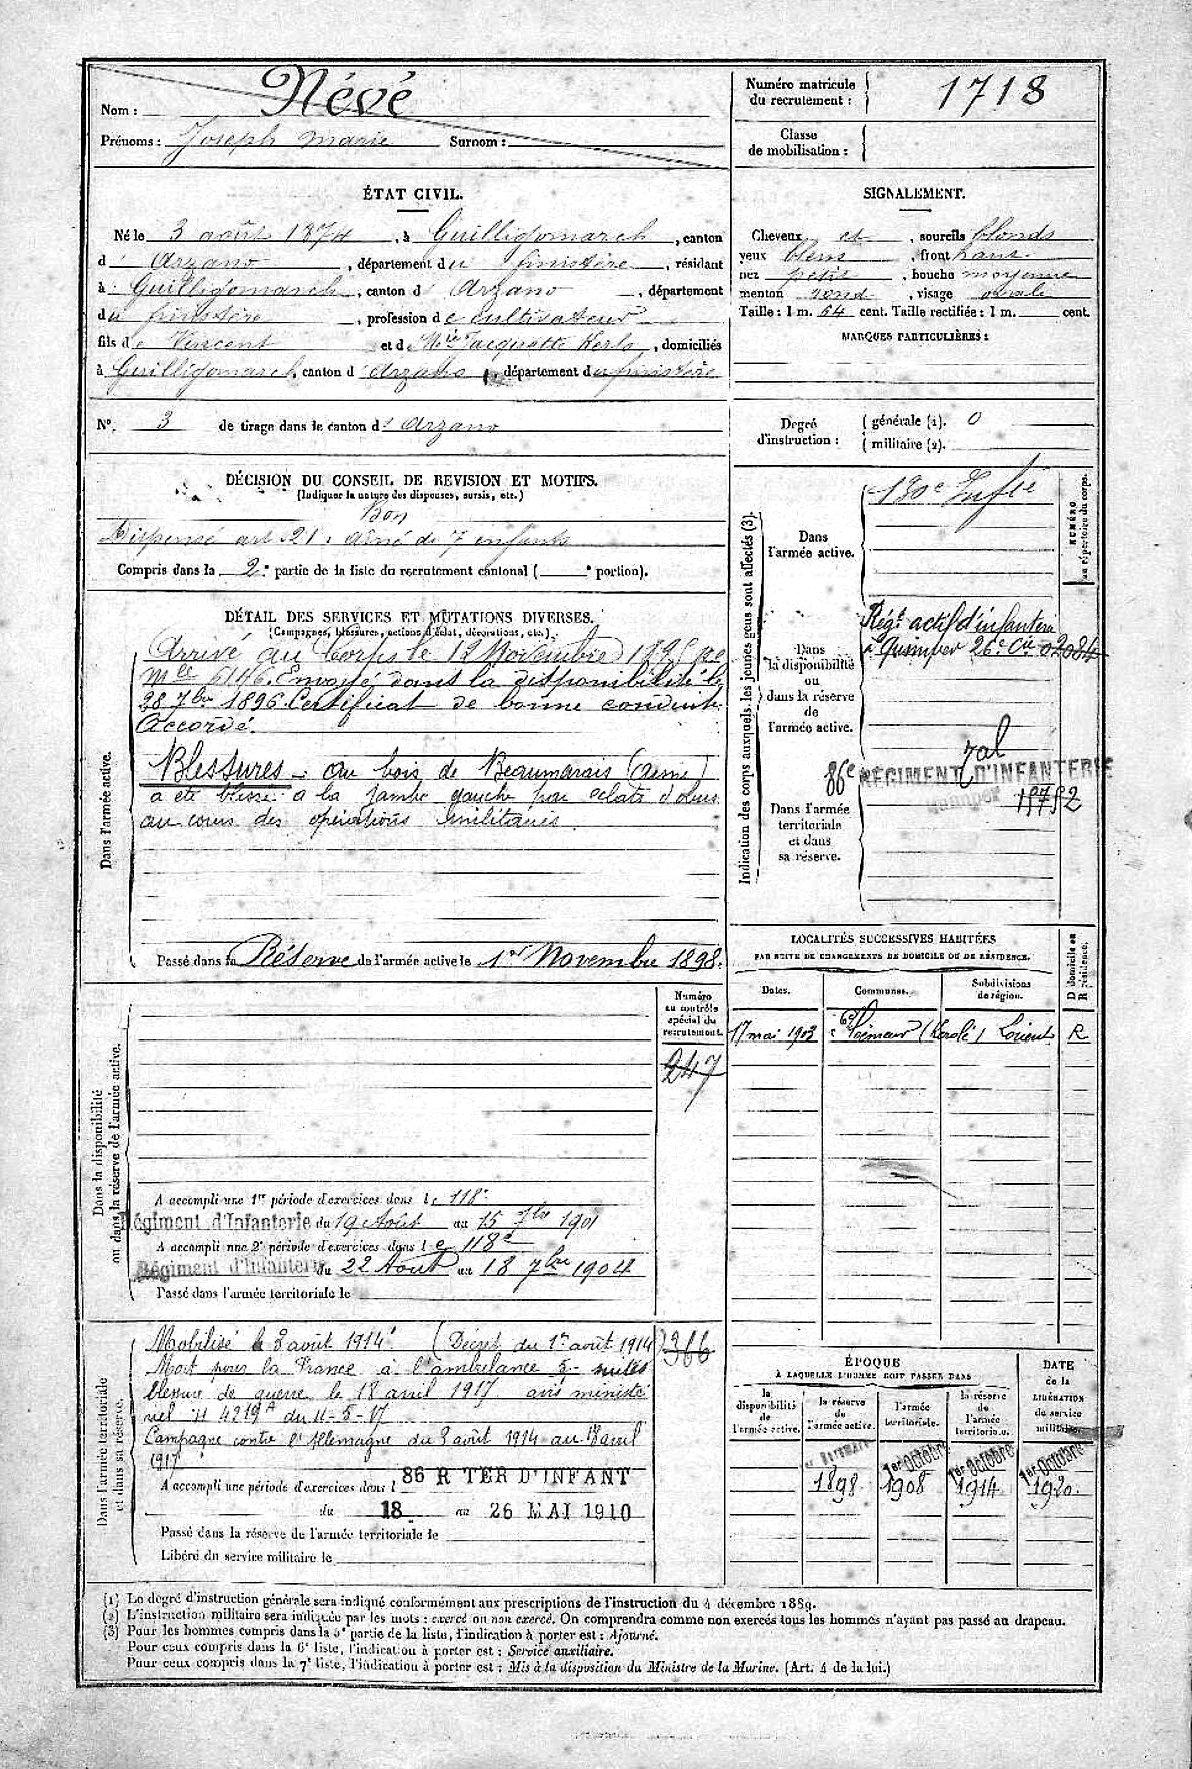 Nom : Névé
Prénoms : Joseph Marie Surnom :
Numéro matricule du recrutement : 1718
Classe de mobilisation :
ÉTAT CIVIL.
Né le 3 août 1874, à Guilligomarch, canton
d'Arzano, département du finistère, résidant
à Guilligomarch, canton d'Arzano, département
du finistère, profession de cultivateur
fils de Vincent et de Mie Jacquette Kerlo, domiciliés
à Guilligomarch, canton d'Arzano, département du finistère
N°. 3 de tirage dans le canton d'Arzano
SIGNALEMENT.
Cheveux et, sourcils blonds
yeux bleus, front haut
nez petit, bouche moyenne
menton rond, visage ovale
Taille : 1 m. 64 cent. Taille rectifiée : 1 m. cent.
MARQUES PARTICULIÈRES :
Degré d'instruction : générale (1). 0
militaire (2).
DÉCISION DU CONSEIL DE REVISION ET MOTIFS.
(Indiquer la nature des dispenses, sursis, etc.)
Bon
Dispensé art. 21. Aîné de 7 enfants
Compris dans la 2e partie de la liste du recrutement cantonal ( e portion).
DÉTAIL DES SERVICES ET MUTATIONS DIVERSES.
(Campagnes, blessures, actions d'éclat, décorations, etc.)
Dans l'armée active.
Arrivé au Corps le 12 Novembre 1895
Mle 6146. Envoyé dans la disponibilité le
28 7bre 1896. Certificat de bonne conduite
Accordé.
Blessures - au bois de Beaumarais (aisne)
a été blessé à la jambe gauche par éclats d'obus
au cours des opérations militaires.
Passé dans la Réserve de l'armée active le 1er Novembre 1898.
Indication des corps auxquels les jeunes gens sont affectés (3).
NUMÉRO au répertoire du corps.
Dans l'armée active.
Inftie
Dans la disponibilité ou dans la réserve de l'armée active.
Régt actif d'infanterie
à Quimper 26e Cie 02084
Dans l'armée territoriale et dans sa réserve.
86e RÉGIMENT D'INFANTERIE
Quimper
LOCALITÉS SUCCESSIVES HABITÉES
PAR SUITE DE CHANGEMENTS DE DOMICILE OU DE RÉSIDENCE.
Dates. Communes. Subdivisions de région. D domicile ou R résidence.
17 mai 1903 Ploemeur Lorient R
Dans la disponibilité ou dans la réserve de l'armée active.
Numéro au contrôle spécial du recrutement.
247
A accompli une 1re période d'exercices dans le 118e
Régiment d'Infanterie du 19 Août au 15 7bre 1901
A accompli une 2e période d'exercices dans le 118e
Régiment d'Infanterie du 22 Août au 18 7bre 1904
Passé dans l'armée territoriale le
Dans l'armée territoriale et dans sa réserve.
Mobilisé le 3 août 1914 (Décret du 1er août 1914)
366
Mort pour la France à l'ambulance suites
blessure de guerre le 18 avril 1917 avis ministé
riel H 4219 du 11-5-17
Campagne contre l'Allemagne du 3 août 1914 au 18 avril
1917
A accompli une période d'exercices dans l 86 R TER D'INFANT
du 18 au 26 MAI 1910
Passé dans la réserve de l'armée territoriale le
Libéré du service militaire le
ÉPOQUE
À LAQUELLE L'HOMME DOIT PASSER DANS
la disponibilité de l'armée active. la réserve de l'armée active. l'armée territoriale. la réserve de l'armée territoriale.
DATE de la LIBÉRATION du service militaire.
1898 1er Octobre 1908 1er Octobre 1914 1er Octobre 1920
(1) Le degré d'instruction générale sera indiqué conformément aux prescriptions de l'instruction du 4 décembre 1889.
(2) L'instruction militaire sera indiquée par les mots : exercé ou non exercé. On comprendra comme non exercés tous les hommes n'ayant pas passé au drapeau.
(3) Pour les hommes compris dans la 5e partie de la liste, l'indication à porter est : Ajourné.
Pour ceux compris dans la 6e liste, l'indication à porter est : Service auxiliaire.
Pour ceux compris dans la 7e liste, l'indication à porter est : Mis à la disposition du Ministre de la Marine. (Art. 4 de la loi.)